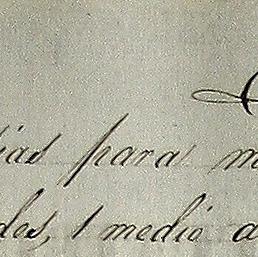 ias para m
des, 1 medio a